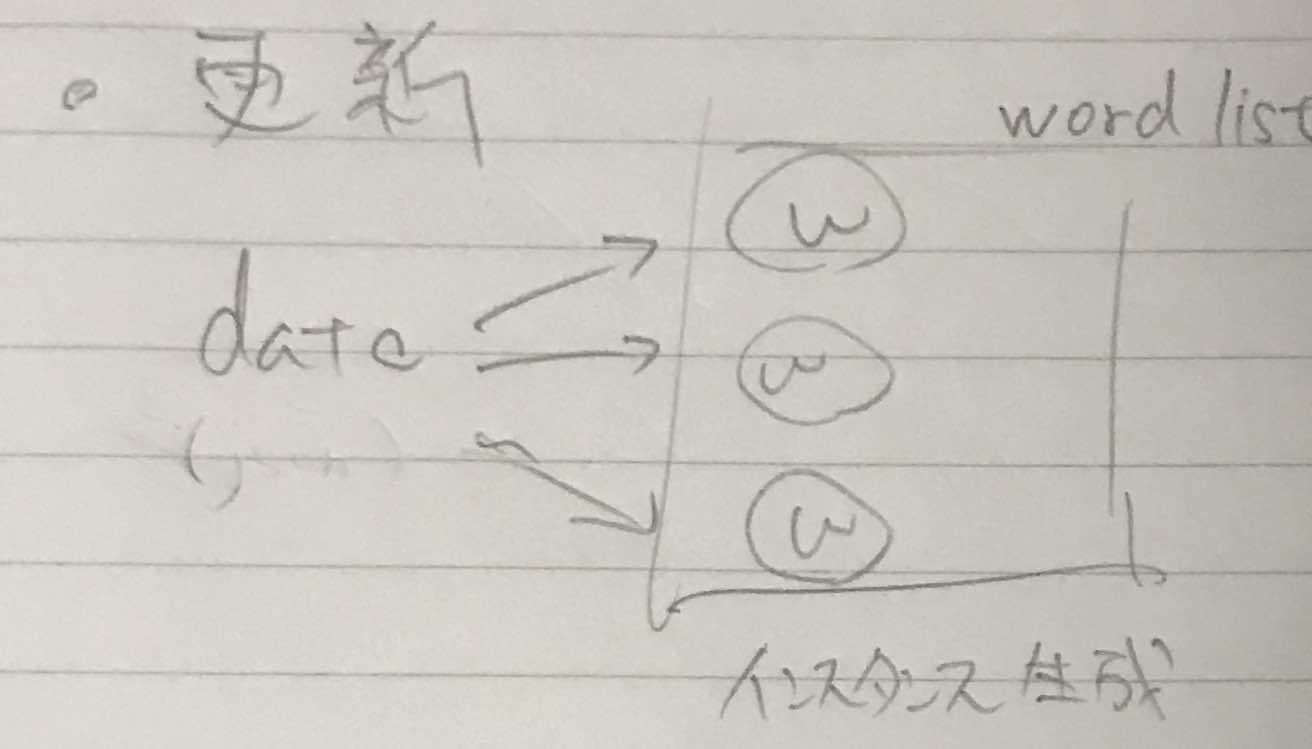 。更新
word list
w
date
w
w
インスタンス生成